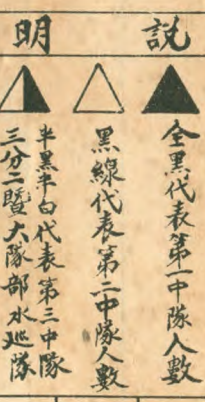 説明
全黑代表第一中隊人數
黑線代表第二中隊人數
半黑半白代表第三中隊
三分二暨大隊部水巡隊